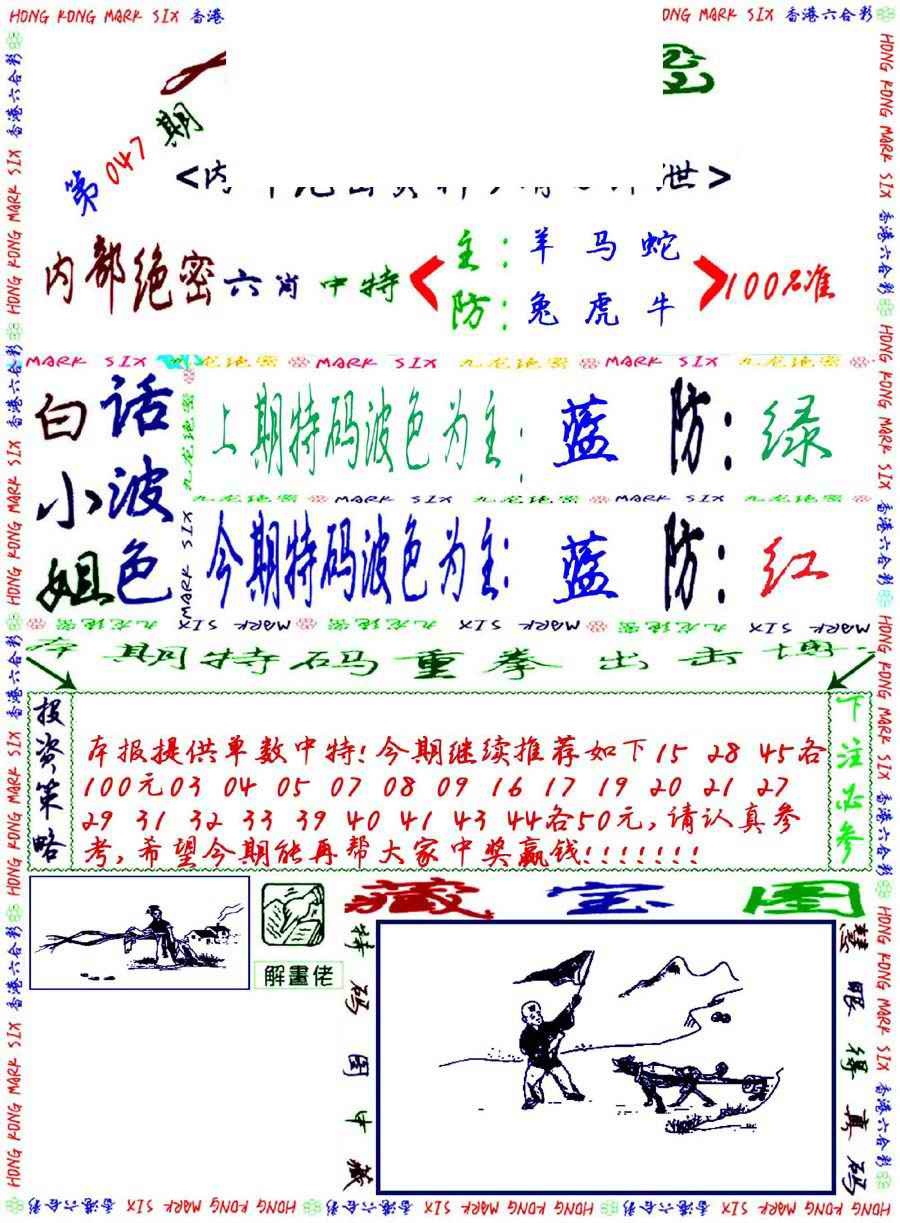 HONG KONG MARK SIX 香港
ONG MARK SIX 香港六合彩
第047期
<内
泄>
内部绝密六肖中特
主：羊马蛇
防：兔虎牛
100%准
MARK SIX 九龙绝密 MARK SIX 九龙绝密 MARK SIX 九龙绝密
白话小波姐色
上期特码波色为主：蓝 防：绿
九龙绝密 MARK SIX 九龙绝密 MARK SIX 九龙绝密
今期特码波色为主：蓝 防：红
九龙绝密 MARK SIX 九龙绝密 MARK SIX 九龙绝密 MARK SIX
本期特码重拳出击
投资策略
本报提供单数中特!今期继续推荐如下15 28 45各
100元03 04 05 07 08 09 16 17 19 20 21 27
29 31 32 33 39 40 41 43 44各50元,请认真参
考,希望今期能再帮大家中奖赢钱!!!!!!!
下注必参
藏宝图
解畫佬
特码图中藏
慧眼得真码
HONG KONG MARK SIX 香港六合彩